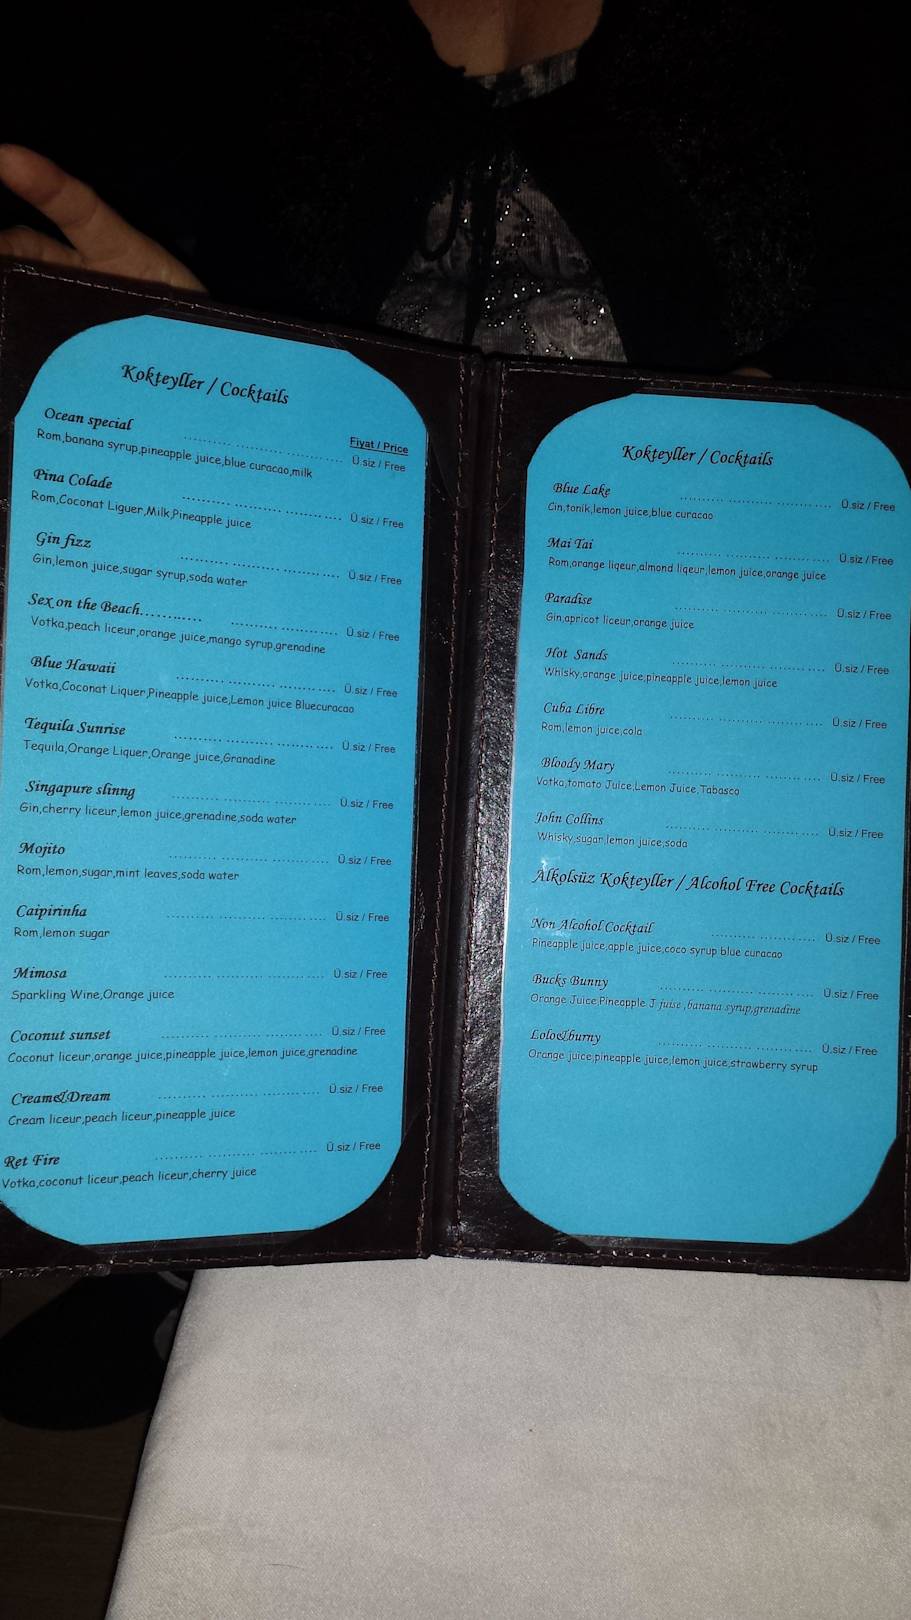 Kokteyller / Cocktails
Fiyat / Price
Ocean special ........................ Ü.siz / Free
Rom,banana syrup,pineapple juice,blue curacao,milk
Pina Colade ........................ Ü.siz / Free
Rom,Coconat Liguer,Milk,Pineapple juice
Gin fizz ........................ Ü.siz / Free
Gin,lemon juice,sugar syrup,soda water
Sex on the Beach............ ................ Ü.siz / Free
Votka,peach liceur,orange juice,mango syrup,grenadine
Blue Hawaii ........................ Ü.siz / Free
Votka,Coconat Liquer,Pineapple juice,Lemon juice Bluecuracao
Tequila Sunrise ........................ Ü.siz / Free
Tequila,Orange Liquer,Orange juice,Granadine
Singapure slinng ........................ Ü.siz / Free
Gin,cherry liceur,lemon juice,grenadine,soda water
Mojito ........................ Ü.siz / Free
Rom,lemon,sugar,mint leaves,soda water
Caipirinha ........................ Ü.siz / Free
Rom,lemon sugar
Mimosa ........................ Ü.siz / Free
Sparkling Wine,Orange juice
Coconut sunset ........................ Ü.siz / Free
Coconut liceur,orange juice,pineapple juice,lemon juice,grenadine
Creame&Dream ........................ Ü.siz / Free
Cream liceur,peach liceur,pineapple juice
Ret Fire ........................ Ü.siz / Free
Votka,coconut liceur,peach liceur,cherry juice
Kokteyller / Cocktails
Blue Lake ........................ Ü.siz / Free
Gin,tonik,lemon juice,blue curacao
Mai Tai ........................ Ü.siz / Free
Rom,orange liqeur,almond liqeur,lemon juice,orange juice
Paradise ........................ Ü.siz / Free
Gin,apricot liceur,orange juice
Hot Sands ........................ Ü.siz / Free
Whisky,orange juice,pineapple juice,lemon juice
Cuba Libre ........................ Ü.siz / Free
Rom,lemon juice,cola
Bloody Mary ........................ Ü.siz / Free
Votka,tomato Juice,Lemon Juice,Tabasco
John Collins ........................ Ü.siz / Free
Whisky,sugar,lemon juice,soda
Alkolsüz Kokteyller / Alcohol Free Cocktails
Non Alcohol Cocktail ................ Ü.siz / Free
Pineapple juice,apple juice,coco syrup blue curacao
Bucks Bunny ........................ Ü.siz / Free
Orange Juice,Pineapple J juise ,banana syrup,grenadine
Lolo&burny ........................ Ü.siz / Free
Orange juice,pineapple juice,lemon juice,strawberry syrup